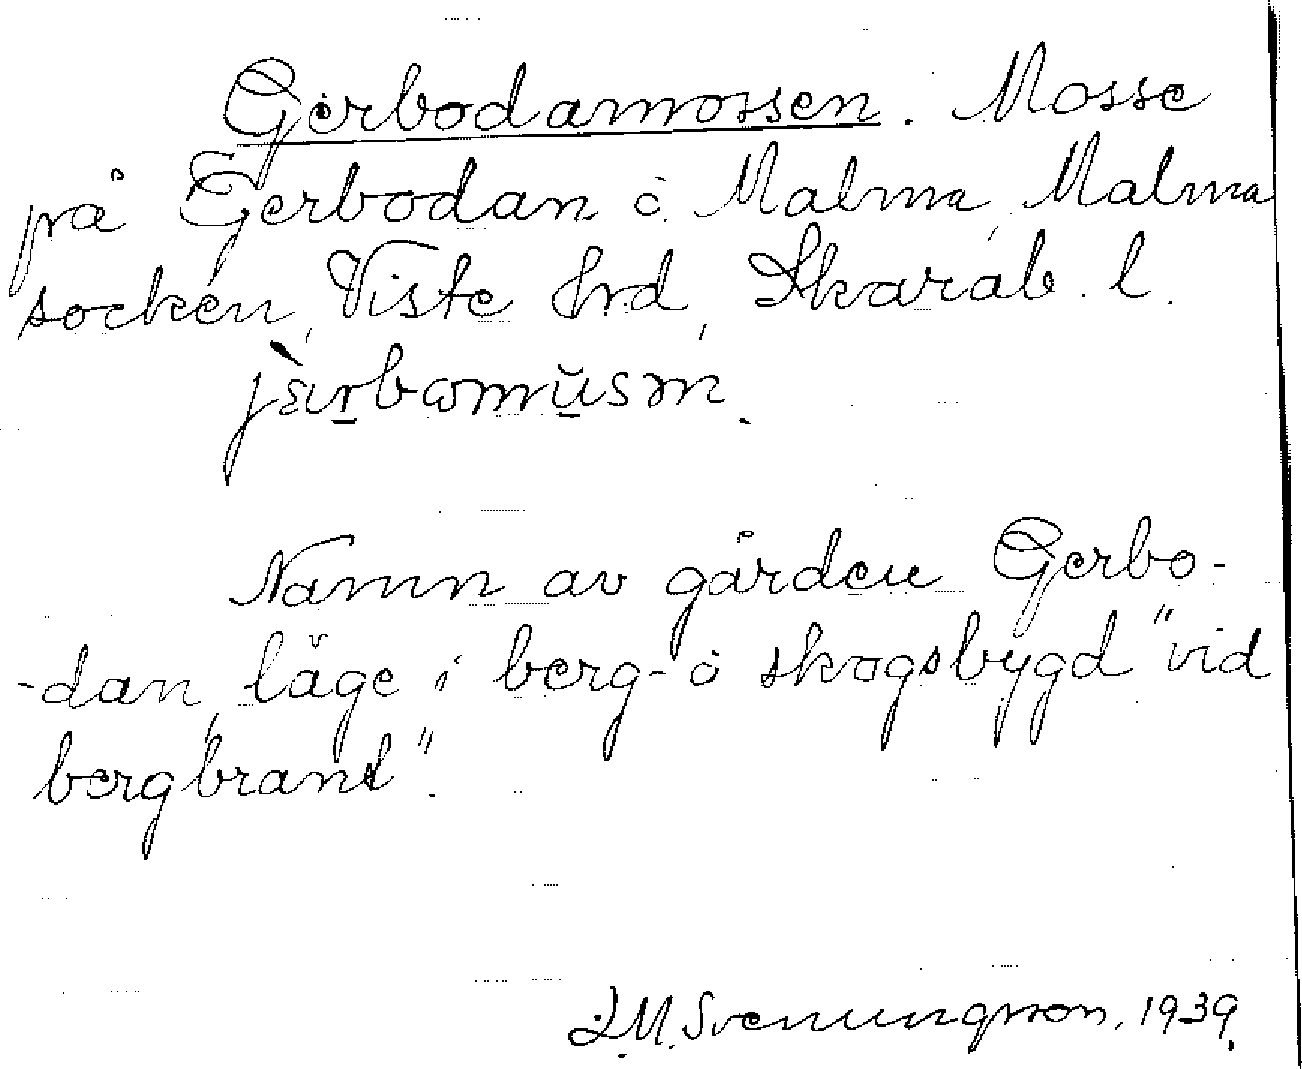 Gerbodamossen. Mosse
på Gerbodan ö. Malma, Malma
socken, Viste hrd, Skarab. l.
Namn av gården Gerbo-
-dan, läge i berg- o skogsbygd "vid
bergbrant".
M. Svenungsson, 1939.